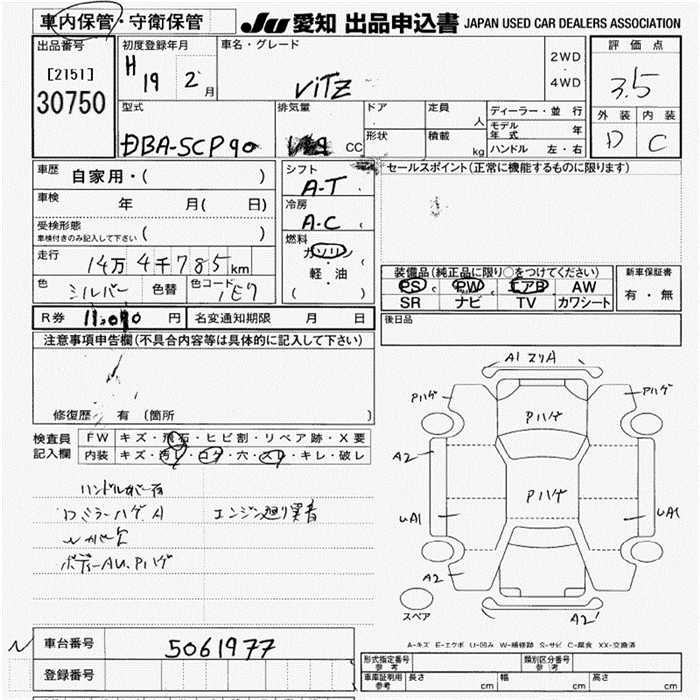 車内保管・守衛保管
JU 愛知 出品申込書 JAPAN USED CAR DEALERS ASSOCIATION
出品番号
[2151]
30750
初度登録年月
H 19 2月
車名・グレード
VITZ
2WD
・
4WD
評価点
3.5
外装 内装
D C
型式
DBA-SCP90
排気量
CC
ドア
形状
定員 人
積載 kg
ディーラー・並行
モデル年式 年
ハンドル 左・右
車歴 自家用・( )
車検 年 月( 日)
受検形態
車検付きのみ記入して下さい ( )
走行 14万4千785km
色 シルバー 色替 色コード 1E7
シフト
A-T
冷房
A-C
燃料
ガソリン
・
軽・油
( )
セールスポイント(正常に機能するものに限ります)
装備品(純正品に限り○をつけてください)
PS PW エアB AW
SR ナビ TV カワシート
新車保証書
有・無
R券 11,090 円 名変通知期限 月 日
後日品
注意事項申告欄(不具合内容等は具体的に記入して下さい)
修復歴 有 (箇所 )
検査員
記入欄
FW キズ・飛石・ヒビ割・リペア跡・X要
内装 キズ・汚れ・コゲ・穴・スレ・キレ・破レ
ハンドル
ロミラーハゲ A エンジン廻り
ボディーAU、Pハゲ
A1 スリA
Pハゲ
Pハゲ
Pハゲ
アハゲ
A2
UA1
UA1
A2
A2
スペア
A-キズ E-エクボ U-凹み W-補修跡 S-サビ C-腐食 XX-交換済
車台番号 5061977
登録番号
形式指定番号
参考
類別区分番号
参考
車庫証明用
参考
長さ cm 幅 cm 高さ cm